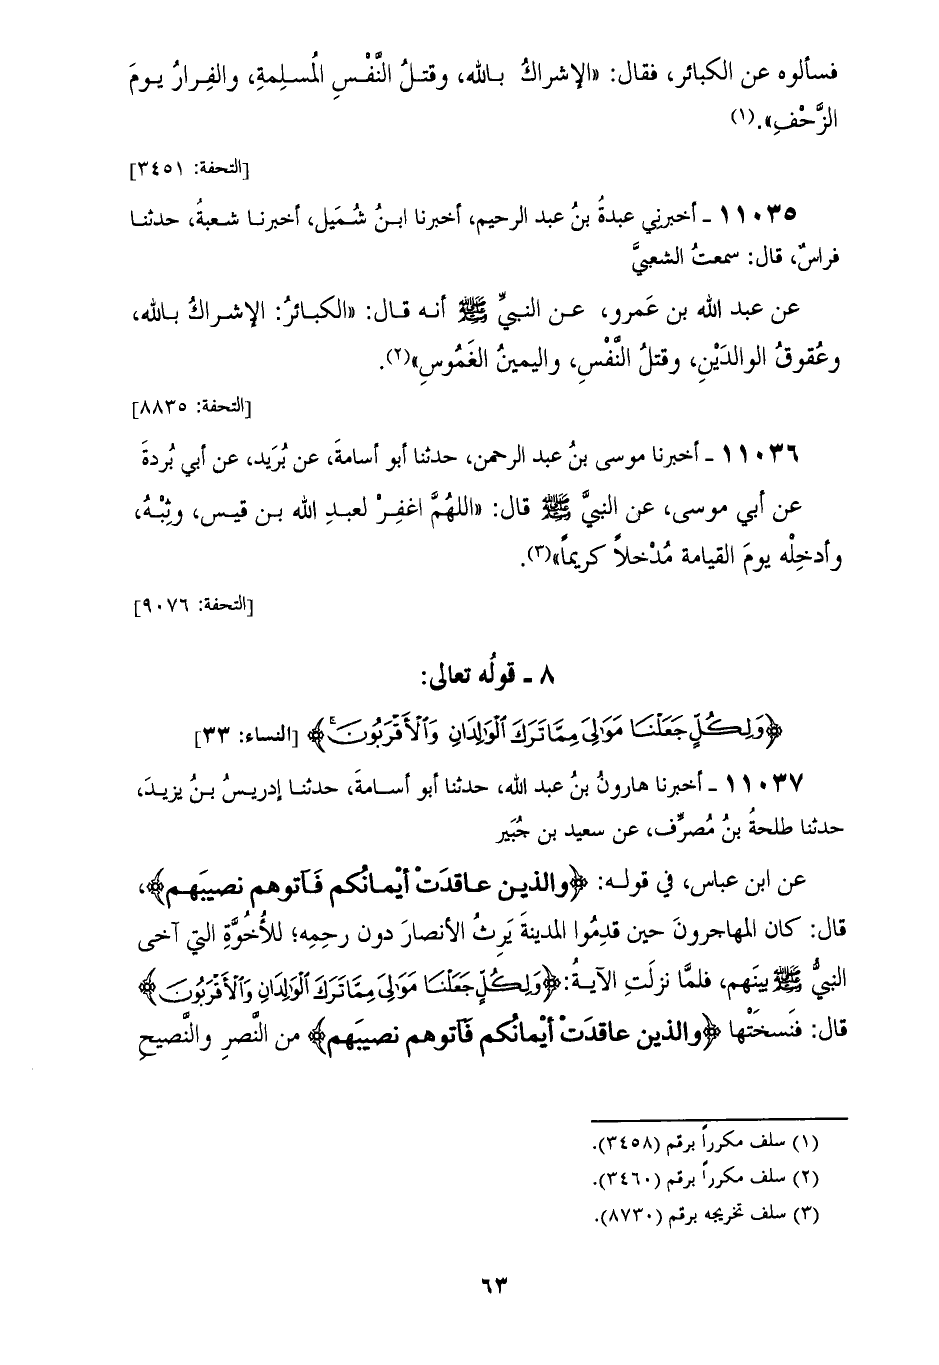 فسألوه عن الكبائر، فقال: «الإشراكُ بالله، وقتلُ النَّفْسِ المُسلِمةِ، والفِرارُ يومَ
الزَّحْفِ».(١)
[التحفة: ٣٤٥١]
١١٠٣٥ ـ أخبرني عبدةُ بنُ عبد الرحيم، أخبرنا ابنُ شُمَيل، أخبرنا شعبةُ، حدثنا
فراسٌ، قال: سمعتُ الشعبيَّ
عن عبد الله بن عَمرو، عن النبيِّ ﷺ أنه قال: «الكبائرُ: الإشراكُ بالله،
وعُقوقُ الوالدَيْنِ، وقتلُ النَّفْسِ، واليمينُ الغَمُوسِ»(٢).
[التحفة: ٨٨٣٥]
١١٠٣٦ ـ أخبرنا موسى بنُ عبد الرحمن، حدثنا أبو أسامةَ، عن بُرَيد، عن أبي بُردةَ
عن أبي موسى، عن النبيِّ ﷺ قال: «اللهُمَّ اغفِرْ لعبدِ الله بن قيس، وثِبْهُ،
وأدخِلْه يومَ القيامة مُدْخلاً كريماً»(٣).
[التحفة: ٩٠٧٦]
٨ ـ قولُه تعالى:
﴿وَلِكُلٍّ جَعَلْنَا مَوَٰلِىَ مِمَّا تَرَكَ ٱلْوَٰلِدَانِ وَٱلْأَقْرَبُونَ ۚ﴾ [النساء: ٣٣]
١١٠٣٧ ـ أخبرنا هارونُ بنُ عبد الله، حدثنا أبو أسامةَ، حدثنا إدريسُ بنُ يزيدَ،
حدثنا طلحةُ بنُ مُصرِّف، عن سعيد بن جُبَير
عن ابن عباس، في قوله: ﴿والذين عاقدَتْ أيْمانُكم فَآتوهم نصيبَهم﴾،
قال: كان المهاجرونَ حين قدِمُوا المدينةَ يَرِثُ الأنصارَ دون رحِمِه؛ للأُخُوَّةِ التي آخى
النبيُّ ﷺ بينَهم، فلمَّا نزلَتِ الآيةُ: ﴿وَلِكُلٍّ جَعَلْنَا مَوَٰلِىَ مِمَّا تَرَكَ ٱلْوَٰلِدَانِ وَٱلْأَقْرَبُونَ﴾
قال: فنَسخَتْها ﴿والذين عاقدَتْ أيْمانُكم فَآتوهم نصيبَهم﴾ من النَّصرِ والنَّصيحِ
(١) سلف مكرراً برقم (٣٤٥٨).
(٢) سلف مكرراً برقم (٣٤٦٠).
(٣) سلف تخريجه برقم (٨٧٣٠).
٦٣